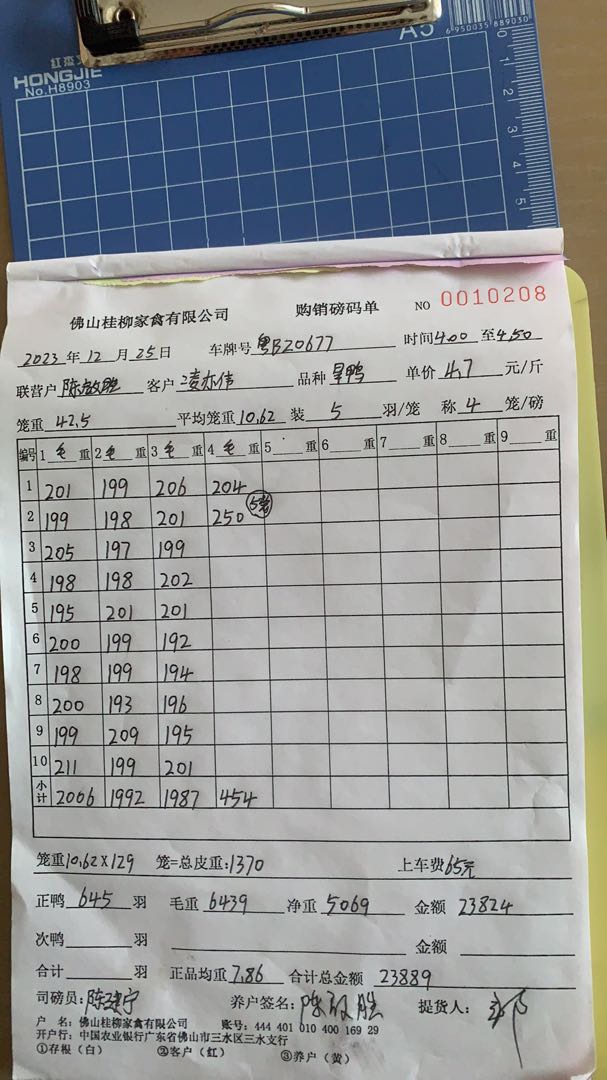 HONGJIE
No.H8903
A5
6 950035 889030
0 1 2 3 4 5
佛山桂柳家禽有限公司 购销磅码单 NO 0010208
2023 年 12 月 25 日 车牌号 粤BZ0677 时间 4.00 至 4.50
联营户 陈敏胜 客户 凌亦伟 品种 旱鸭 单价 4.7 元/斤
笼重 42.5 平均笼重 10.62 装 5 羽/笼 称 4 笼/磅
编号 1 毛 重 2 毛 重 3 毛 重 4 毛 重 5 重 6 重 7 重 8 重 9 重
1 201 199 206 204
2 199 198 201 250 5笼
3 205 197 199
4 198 198 202
5 195 201 201
6 200 199 192
7 198 199 194
8 200 193 196
9 199 209 195
10 211 199 201
小计 2006 1992 1987 454
笼重 10.62×129 笼=总皮重:1370 上车费 65元
正鸭 645 羽 毛重 6439 净重 5069 金额 23824
次鸭 羽 金额
合计 羽 正品均重 7.86 合计总金额 23889
司磅员: 陈建宁 养户签名: 陈敏胜 提货人: 郭
户 名: 佛山桂柳家禽有限公司 账号: 444 401 010 400 169 29
开户行: 中国农业银行广东省佛山市三水区三水支行
①存根（白） ②客户（红） ③养户（黄）